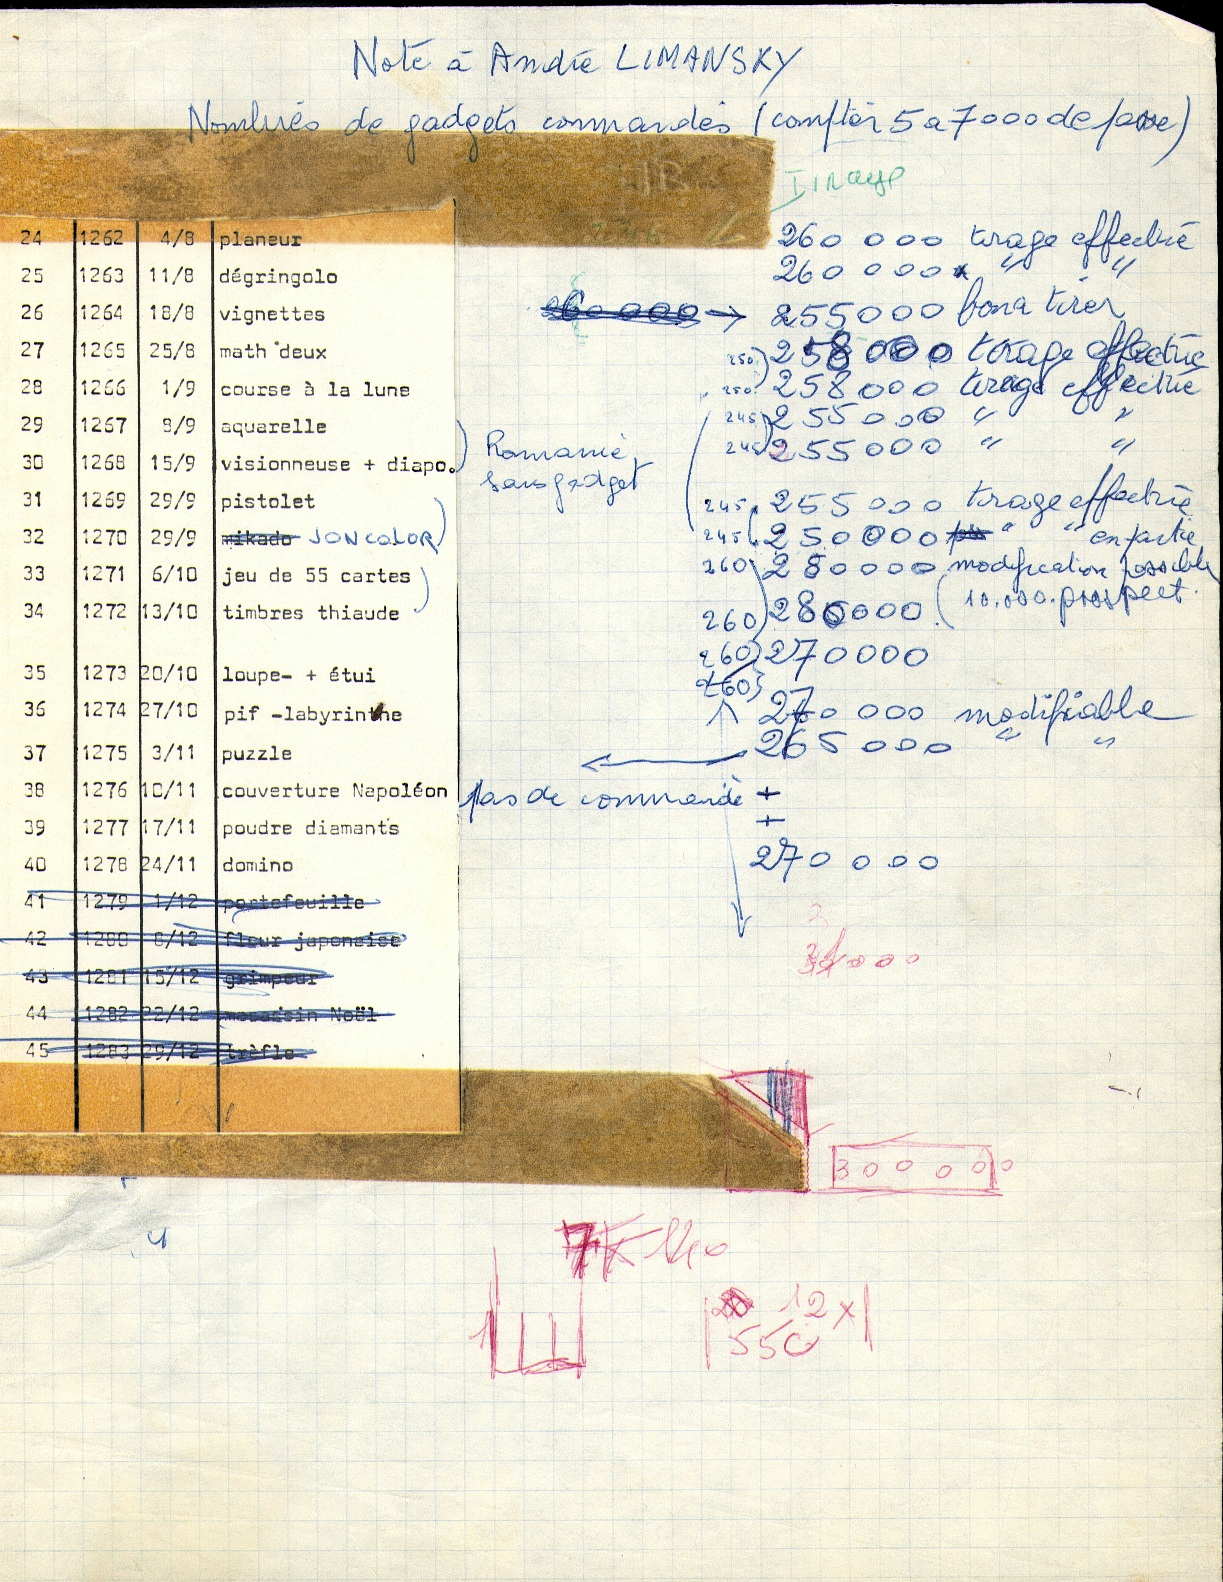 Note à André LIMANSKY
Nombres de gadgets commandés (compter 5 à 7000 de passe)
Tirage
24 1262 4/8 planeur 260 000 tirage effectué
25 1263 11/8 dégringolo 260 000 " "
26 1264 18/8 vignettes 260 000 → 255000 bon à tirer
27 1265 25/8 math deux 250 258 000 tirage effectué
28 1266 1/9 course à la lune 250 258 000 tirage effectué
29 1267 8/9 aquarelle 245 255 000 " "
30 1268 15/9 visionneuse + diapo. 245 255 000 " "
Romanie,
sans gadget
31 1269 29/9 pistolet 245 255 000 tirage effectué
32 1270 29/9 mikado JONCOLOR 245 250 000 " " en partie
33 1271 6/10 jeu de 55 cartes 260 280000 modification possible
34 1272 13/10 timbres thiaude 260 280000 (10.000.prospect.
35 1273 20/10 loupe- + étui 260 270000
260
36 1274 27/10 pif -labyrinthe 270 000 modifiable
37 1275 3/11 puzzle ← 265 000 " "
38 1276 10/11 couverture Napoléon pas de commande +
39 1277 17/11 poudre diamants +
40 1278 24/11 domino 270 000
41 1279 1/12 portefeuille
42 1280 8/12 fleur japonaise
43 1281 15/12 grimpeur
44 1282 22/12 Noël
45 1283 29/12 trèfle
300 000
7
12 x
550